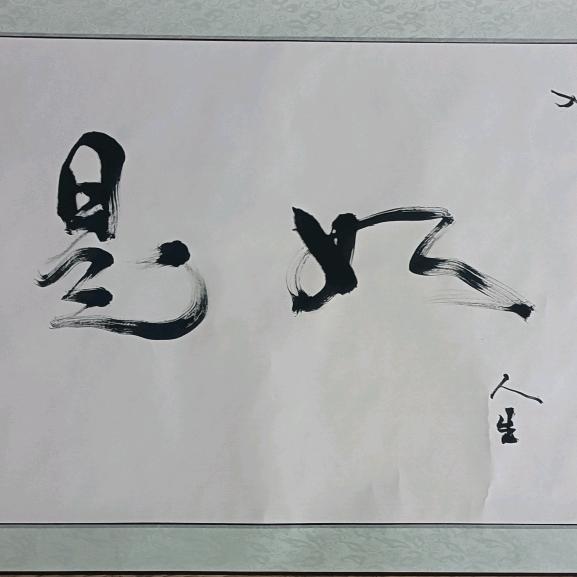 人生
如是